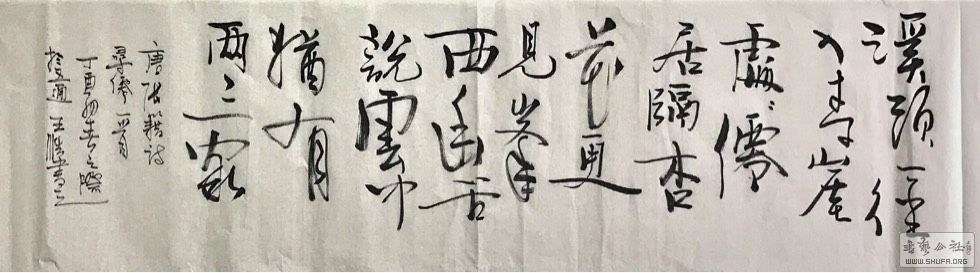 溪頭一徑
入青崖
處處僊
居隔杏
花更
見峯
西幽客
說雲中
猶有
兩三家
唐張籍詩
尋僊一首
丁酉初春之際
通王
书艺公社
WWW.SHUFA.ORG